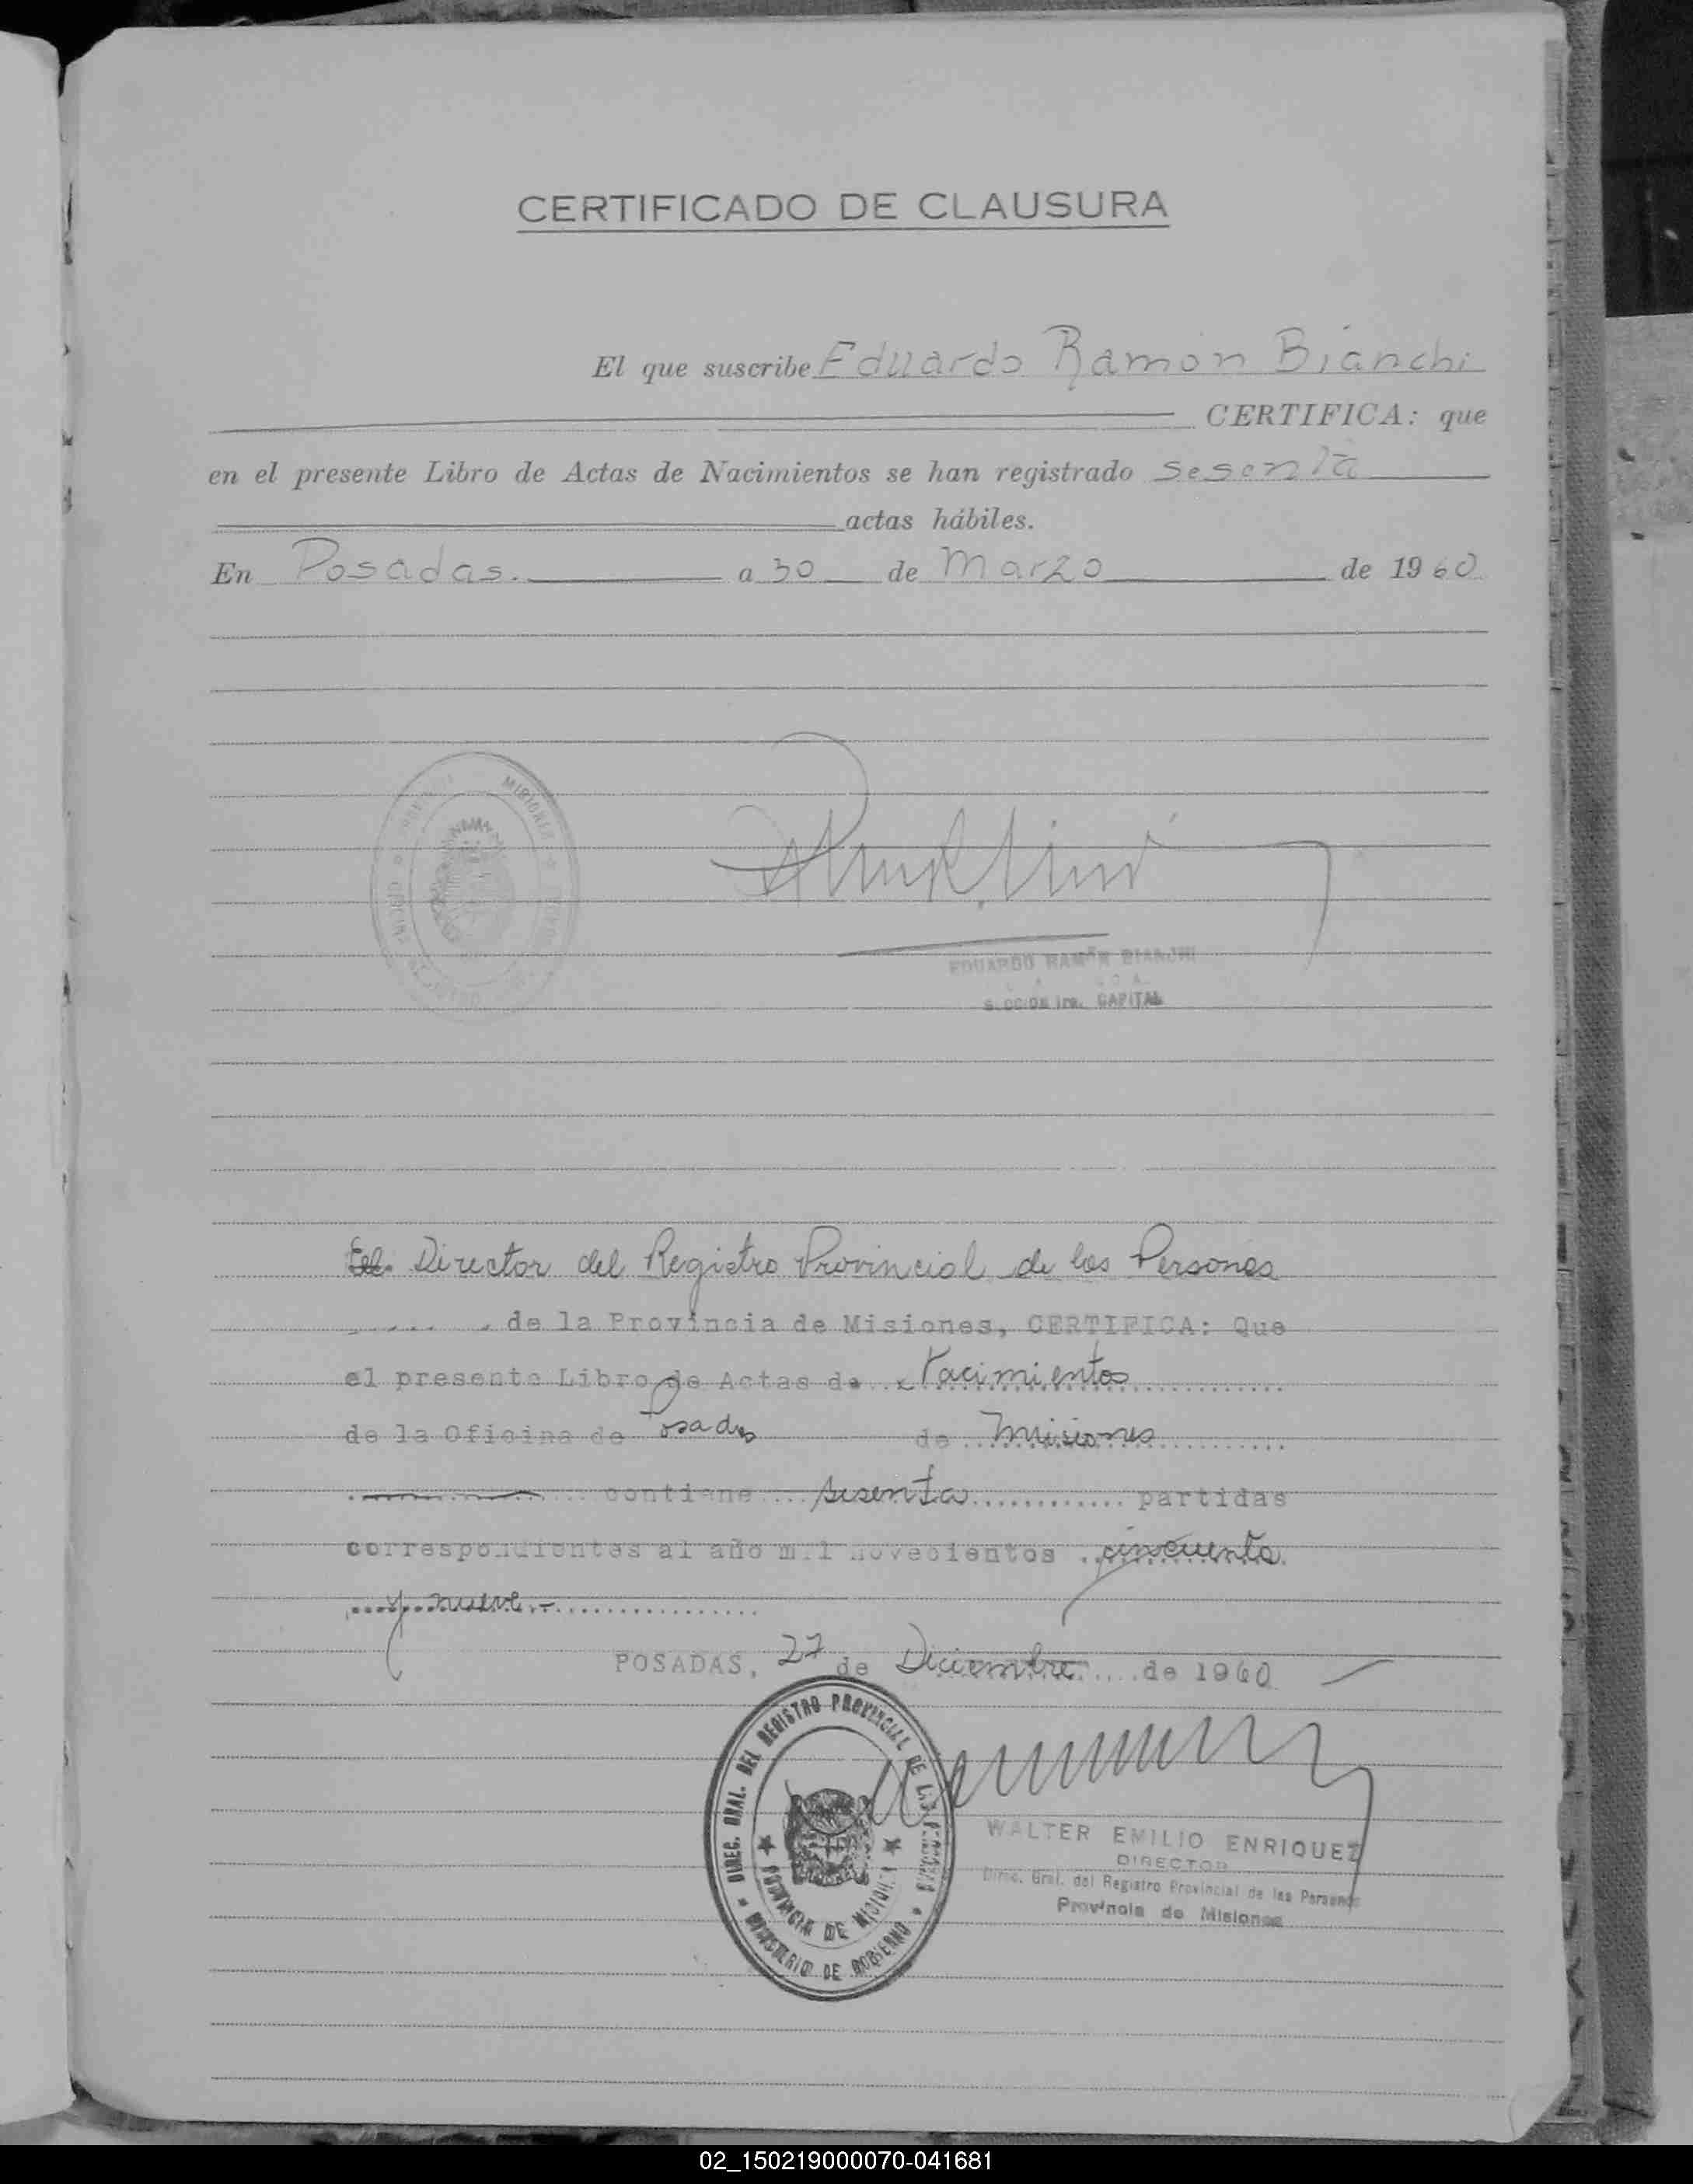 CERTIFICADO DE CLAUSURA
El que suscribe Eduardo Ramón Bianchi
CERTIFICA: que
en el presente Libro de Actas de Nacimientos se han registrado sesenta
actas hábiles.
En Posadas. a 30 de Marzo de 1960
MISIONES
EDUARDO RAMÓN BIANCHI
SECCION 1ra. CAPITAL
El Director del Registro Provincial de las Personas
de la Provincia de Misiones, CERTIFICA: Que
el presente Libro de Actas de Nacimientos
de la Oficina de Posadas de Misiones
contiene sesenta partidas
correspondientes al año mil novecientos cincuenta
y nueve.-
POSADAS, 27 de Diciembre de 1960
DIREC. GRAL. DEL REGISTRO PROVINCIAL DE LAS PERSONAS
PROVINCIA DE MISIONES
MINISTERIO DE GOBIERNO
WALTER EMILIO ENRIQUEZ
DIRECTOR
Direc. Gral. del Registro Provincial de las Personas
Provincia de Misiones
02_150219000070-041681